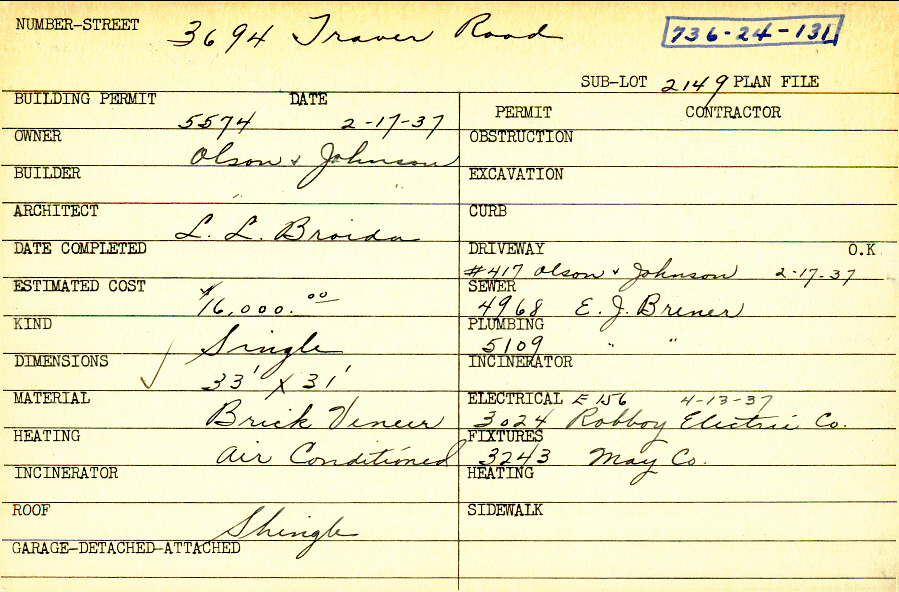 NUMBER-STREET 3694 Traver Road 736-24-131
SUB-LOT 2149 PLAN FILE
BUILDING PERMIT DATE
5574 2-17-37
PERMIT CONTRACTOR
OWNER Olson & Johnson
OBSTRUCTION
BUILDER " "
EXCAVATION
ARCHITECT L. L. Broida
CURB
DATE COMPLETED
DRIVEWAY O.K
#417 Olson & Johnson 2-17-37
ESTIMATED COST $16,000.00
SEWER
4968 E. J. Brener
KIND Single
PLUMBING
5109 " "
DIMENSIONS 33' X 31'
INCINERATOR
MATERIAL Brick Veneer
ELECTRICAL E 156 4-13-37
3024 Robboy Electric Co.
HEATING Air Conditioned
FIXTURES
3243 May Co.
INCINERATOR
HEATING
ROOF Shingle
SIDEWALK
GARAGE-DETACHED-ATTACHED